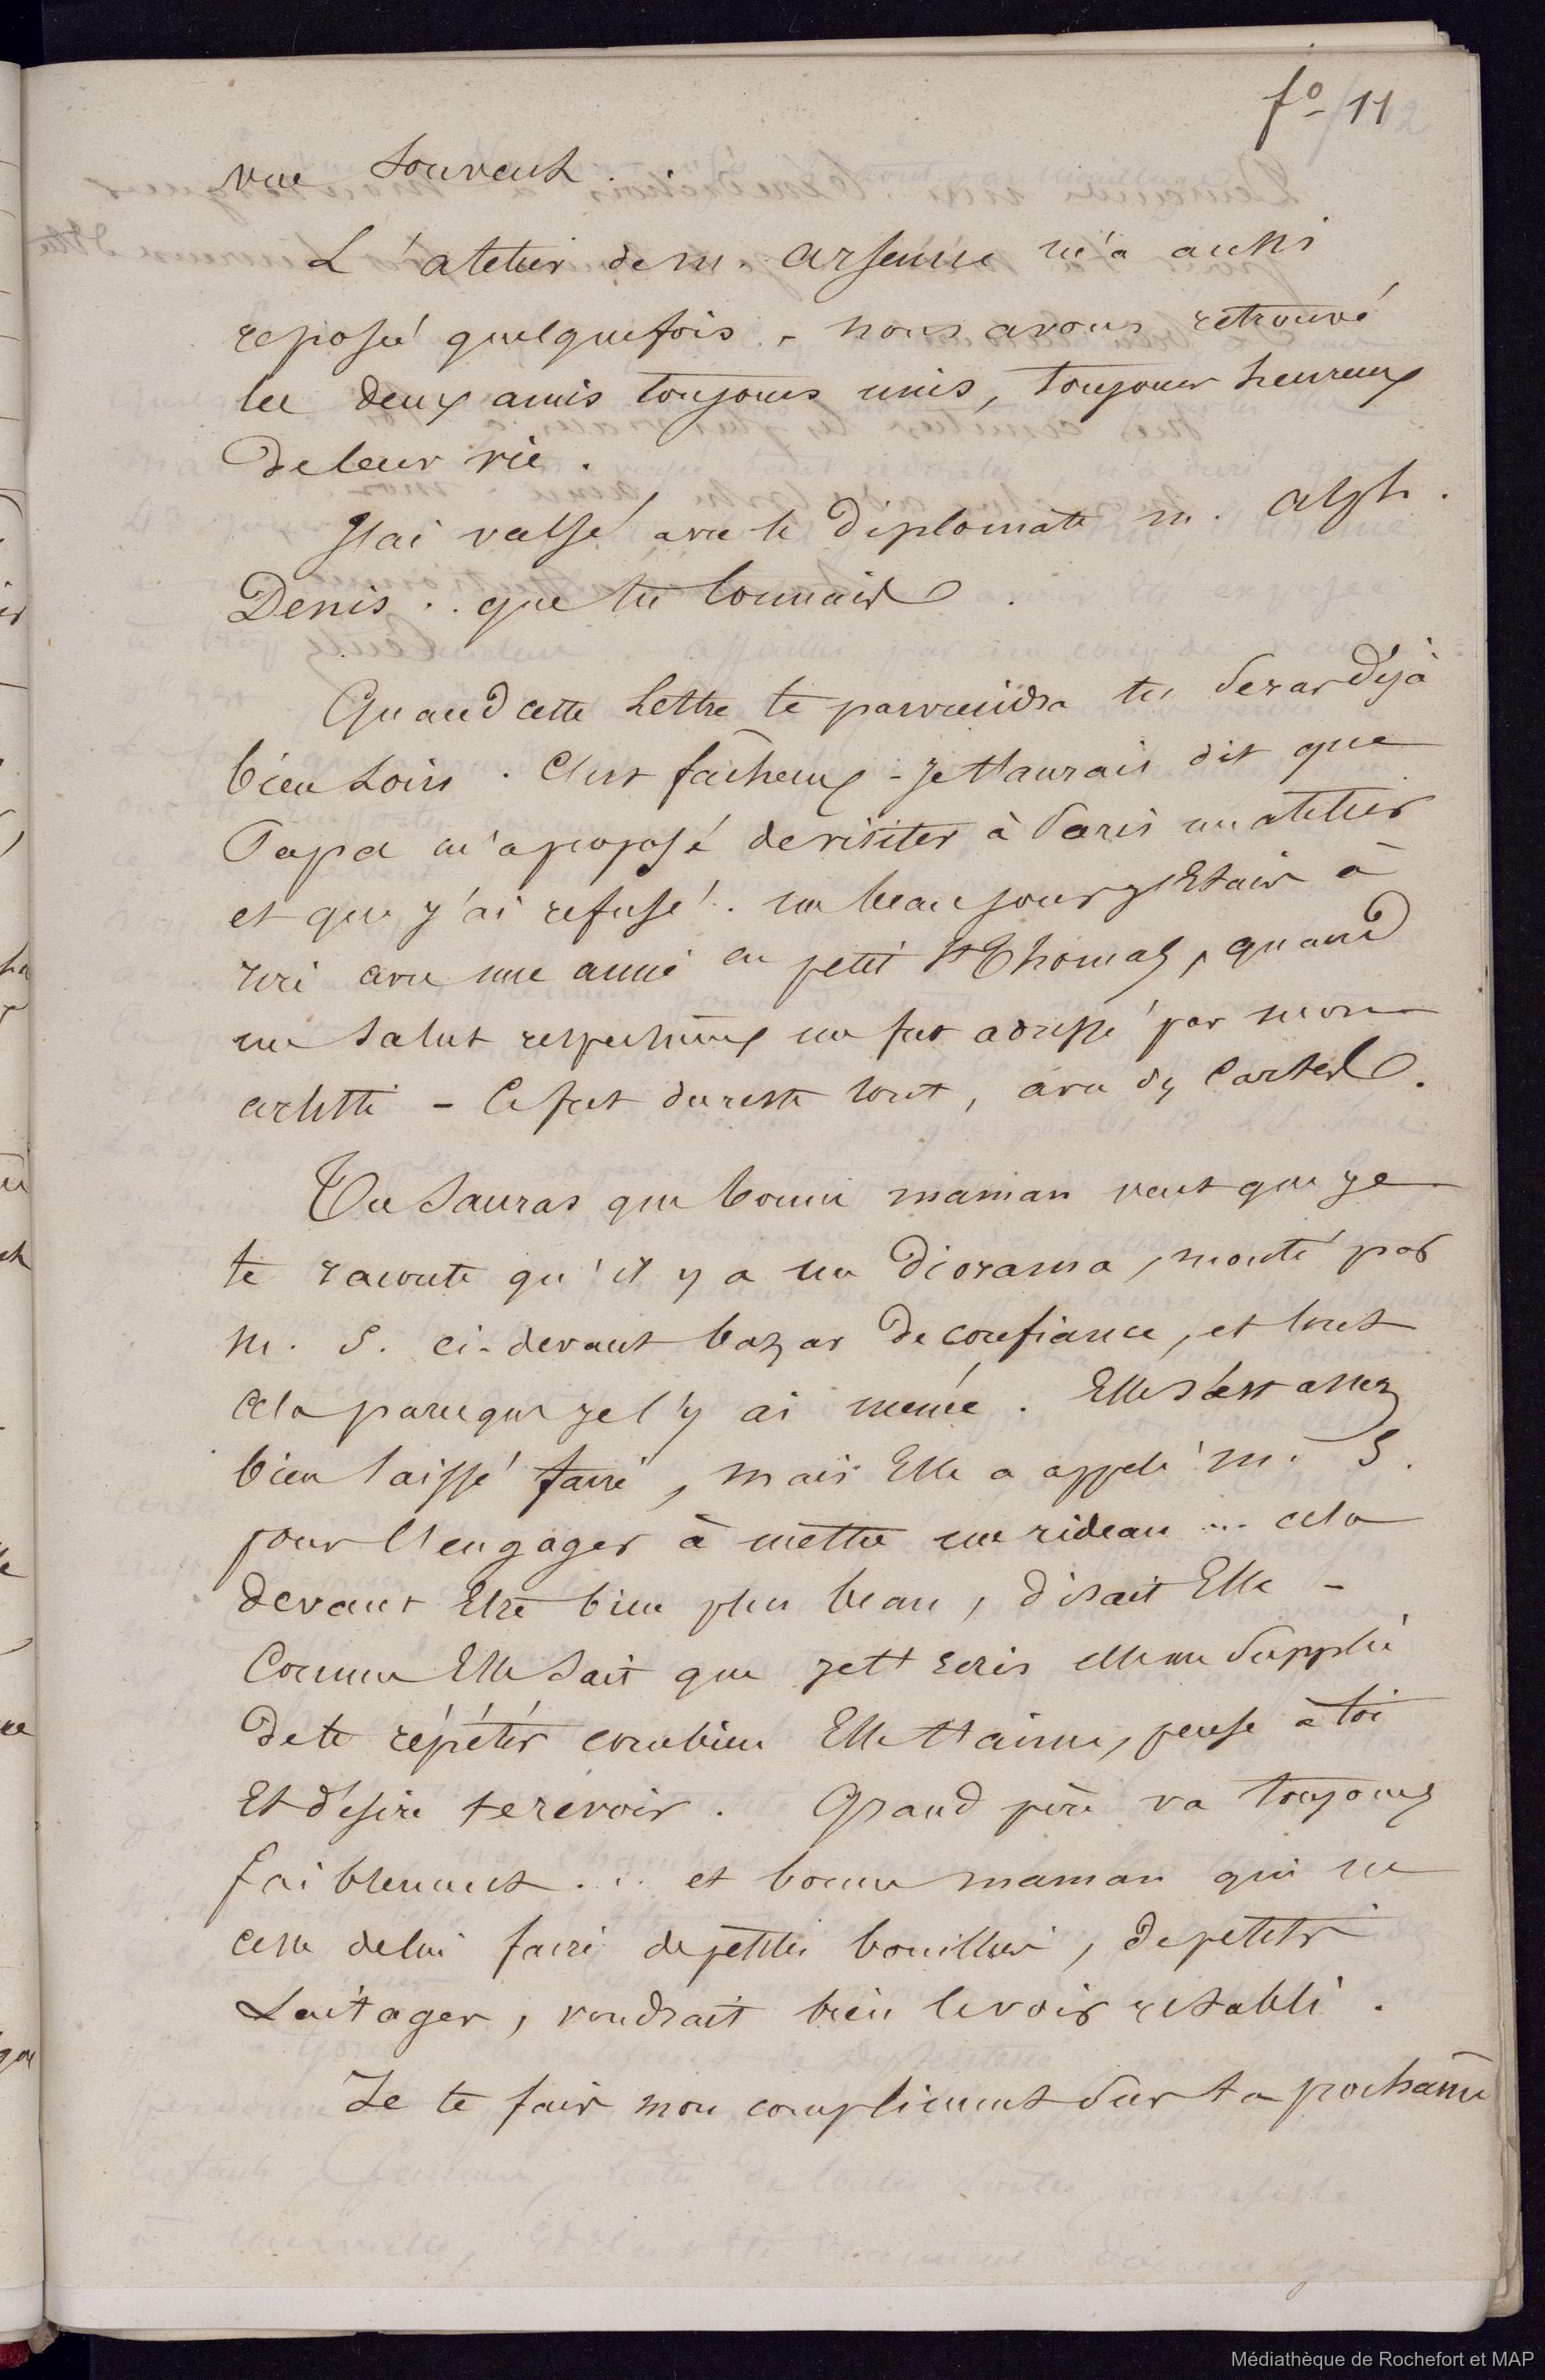 fo 11
vue souvent.
L'atelier de m. arsenne m'a aussi
reposée quelquefois - nous avons retrouvé
les deux amis toujours unis, toujours heureux
de leur vie.
J'ai valsé avec le diplomate m. alph.
Denis.. que tu connais.
Quand cette lettre te parviendra tu seras déjà
bien loin. C'est fâcheux - je t'aurais dit que
Papa m'a proposé de visiter à Paris un atelier
et que j'ai refusé. un beau jour j'Etais à
rire avec une amie au petit St Thomas, quand
un salut respectueux me fut adressé par mon
artiste - Ce fut du reste tout, avec
Tu sauras que bonne maman veut que je
te raconte qu'il y a un Diorama, monté par
m. S. ci-devant bazar de confiance, et tout
cela parceque je l'y ai menée. Elle s'est assez
bien laissé faire, mais Elle a appelé m. S.
pour l'engager à mettre un rideau ... cela
devant Etre bien plus beau, disait Elle -
Comme Elle sait que je t'Ecris elle me supplie
de te répéter combien Elle t'aime, pense à toi
Et désire te revoir. Grand père va toujours
faiblement... et bonne maman qui ne
cesse de lui faire de petites bouillies, de petits
Laitages, voudrait bien le voir rétabli.
Je te fais mon compliment sur ta prochaine
Médiathèque de Rochefort et MAP